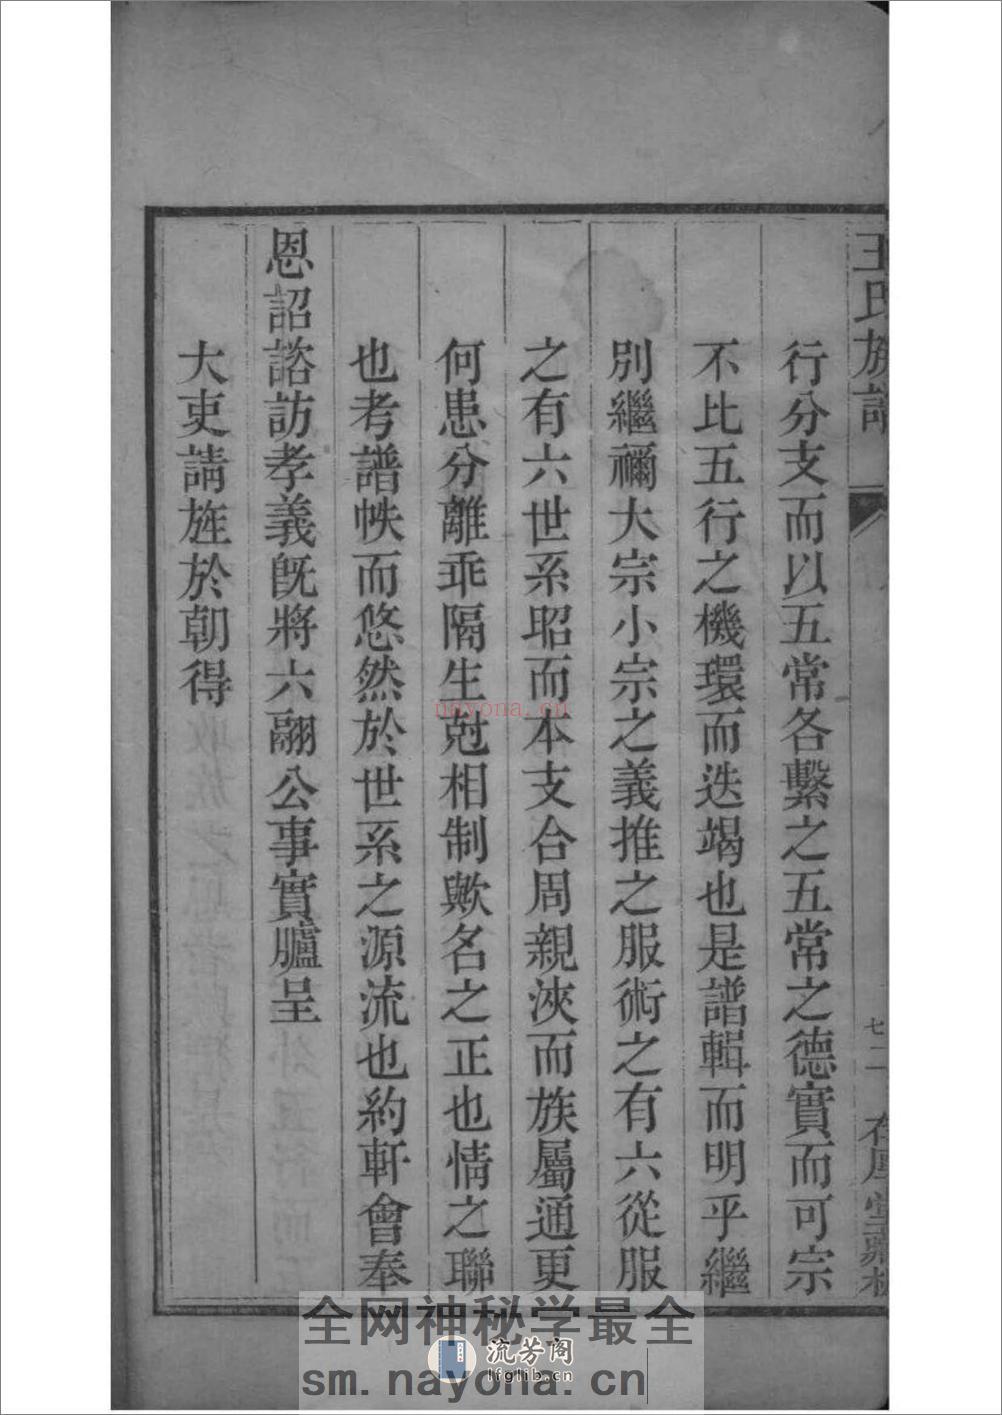 王氏族譜
七二
行分支而以五常各繫之五常之德實而可宗
不比五行之機環而迭竭也是譜輯而明乎繼
別繼禰大宗小宗之義推之服術之有六從服
之有六世系昭而本支合周親浹而族屬通更
何患分離乖隔生尅相制歟名之正也情之聯
也考譜帙而悠然於世系之源流也約軒會奉
恩詔諮訪孝義旣將六翮公事實臚呈
大吏請旌於朝得
nayona.cn
全网神秘学最全
流芳阁
lfglib.cn
sm.nayona.cn